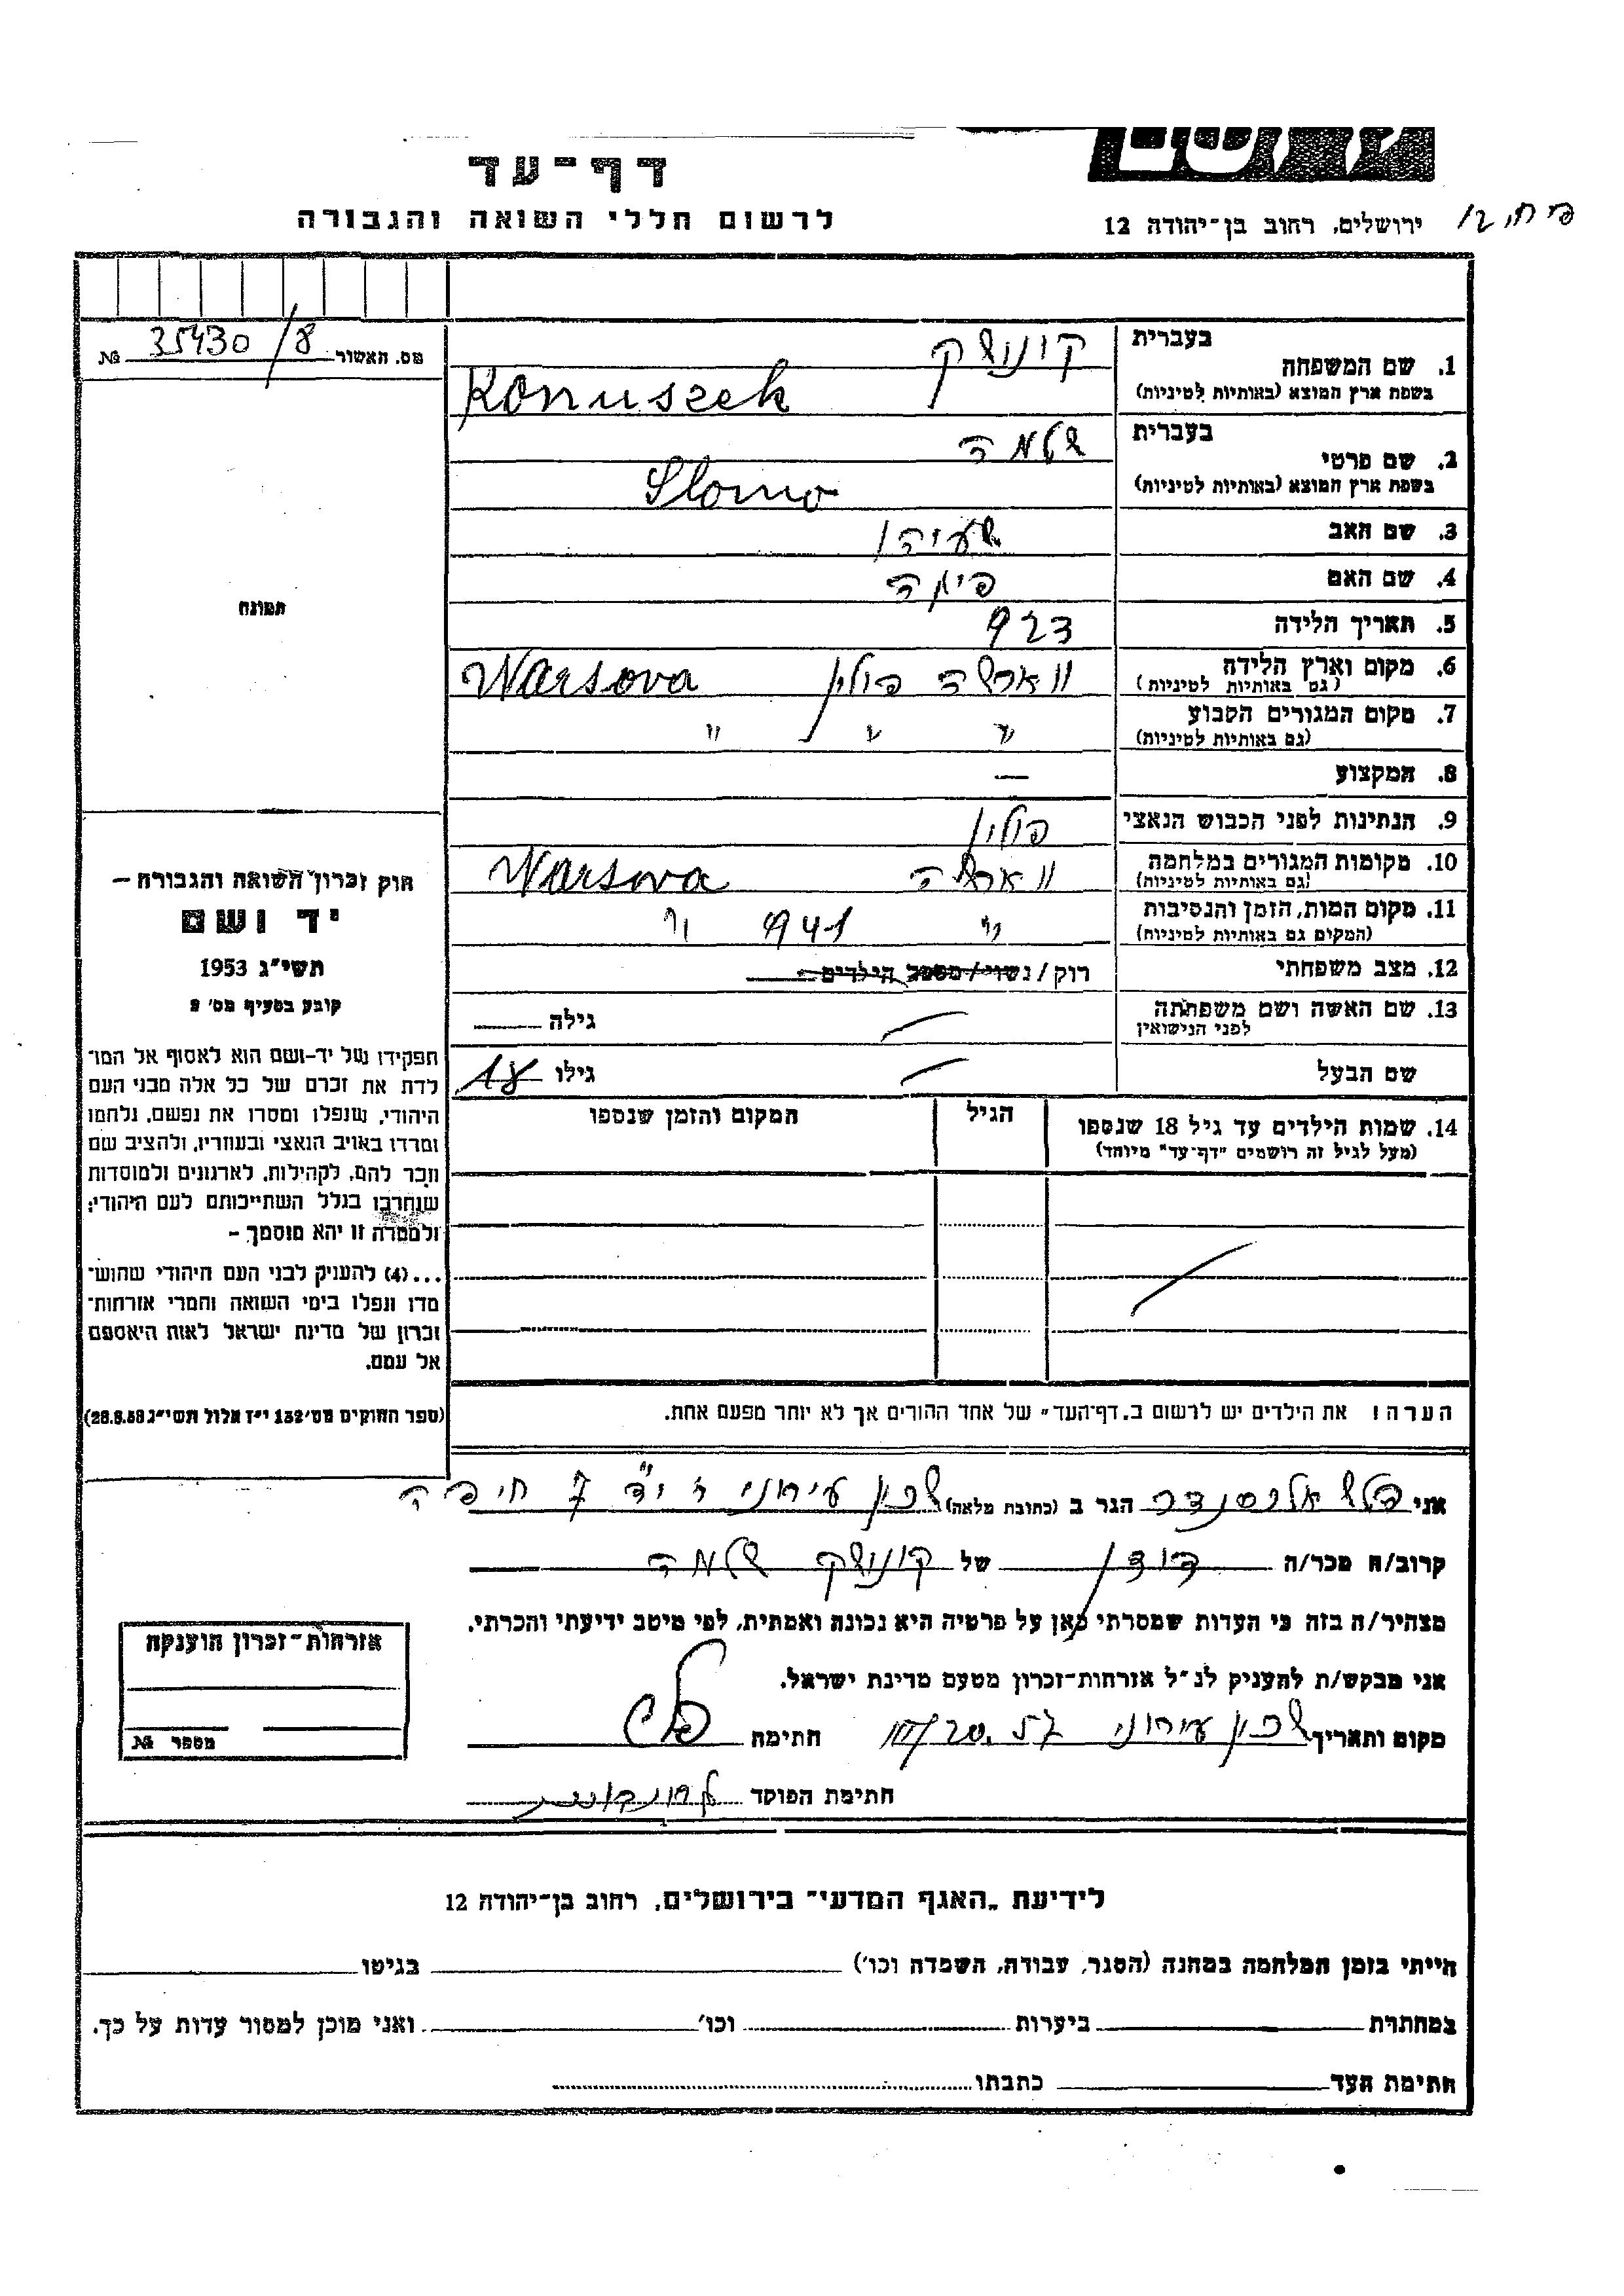 דף-עד
לרשום חללי השואה והגבורה
ירושלים, רחוב בן-יהודה 12
מס. האשור 35430/8 №
בעברית קונושק
1. שם המשפחה
בשפת ארץ המוצא (באותיות לטיניות) Konuszek
בעברית שלמה
2. שם פרטי
בשפת ארץ המוצא (באותיות לטיניות) Slomo
3. שם האב ישעיהו
4. שם האם
5. תאריך הלידה 923
6. מקום וארץ הלידה ווארשה פולין Warsova
(גם באותיות לטיניות)
7. מקום המגורים הקבוע " " "
(גם באותיות לטיניות)
8. המקצוע —
9. הנתינות לפני הכבוש הנאצי פולין
10. מקומות המגורים במלחמה ווארשה Warsova
(גם באותיות לטיניות)
11. מקום המות, הזמן והנסיבות " 941 "
(המקום גם באותיות לטיניות)
12. מצב משפחתי רוק/נשוי/מספר הילדים
13. שם האשה ושם משפחתה גילה
לפני הנישואין
שם הבעל גילו 18
14. שמות הילדים עד גיל 18 שנספו הגיל המקום והזמן שנספו
(מעל לגיל זה רושמים "דף-עד" מיוחד)
תמונה
חוק זכרון השואה והגבורה –
יד ושם
תשי"ג 1953
קובע בסעיף מס' 2
תפקידו של יד-ושם הוא לאסוף אל המו-
לדת את זכרם של כל אלה מבני העם
היהודי, שנפלו ומסרו את נפשם, נלחמו
ומרדו באויב הנאצי ובעוזריו, ולהציב שם
וזכר להם, לקהילות, לארגונים ולמוסדות
שנחרבו בגלל השתייכותם לעם היהודי;
ולמטרה זו יהא מוסמך –
...(4) להעניק לבני העם היהודי שהוש-
מדו ונפלו בימי השואה והמרי אזרחות-
זכרון של מדינת ישראל לאות היאספם
אל עמם.
(ספר החוקים מס' 132 י"ז אלול תשי"ג 28.8.53)
הערה: את הילדים יש לרשום ב"דף-העד" של אחד ההורים אך לא יותר מפעם אחת.
אני אלכסנדר הגר ב (כתובת מלאה) שכון עירוני 7 חיפה
קרוב/ה מכר/ה דודן של קונושק שלמה
מצהיר/ה בזה כי העדות שמסרתי כאן על פרטיה היא נכונה ואמתית, לפי מיטב ידיעתי והכרתי.
אני מבקש/ת להעניק לנ"ל אזרחות-זכרון מטעם מדינת ישראל.
מקום ותאריך שכון עירוני חתימה
חתימת הפוקד
אזרחות-זכרון הוענקה
מספר №
לידיעת "האגף המדעי" בירושלים, רחוב בן-יהודה 12
הייתי בזמן המלחמה במחנה (הסגר, עבודה, השמדה וכו') בגיטו
במחתרת ביערות וכו' ואני מוכן למסור עדות על כך.
חתימת העד כתבתו